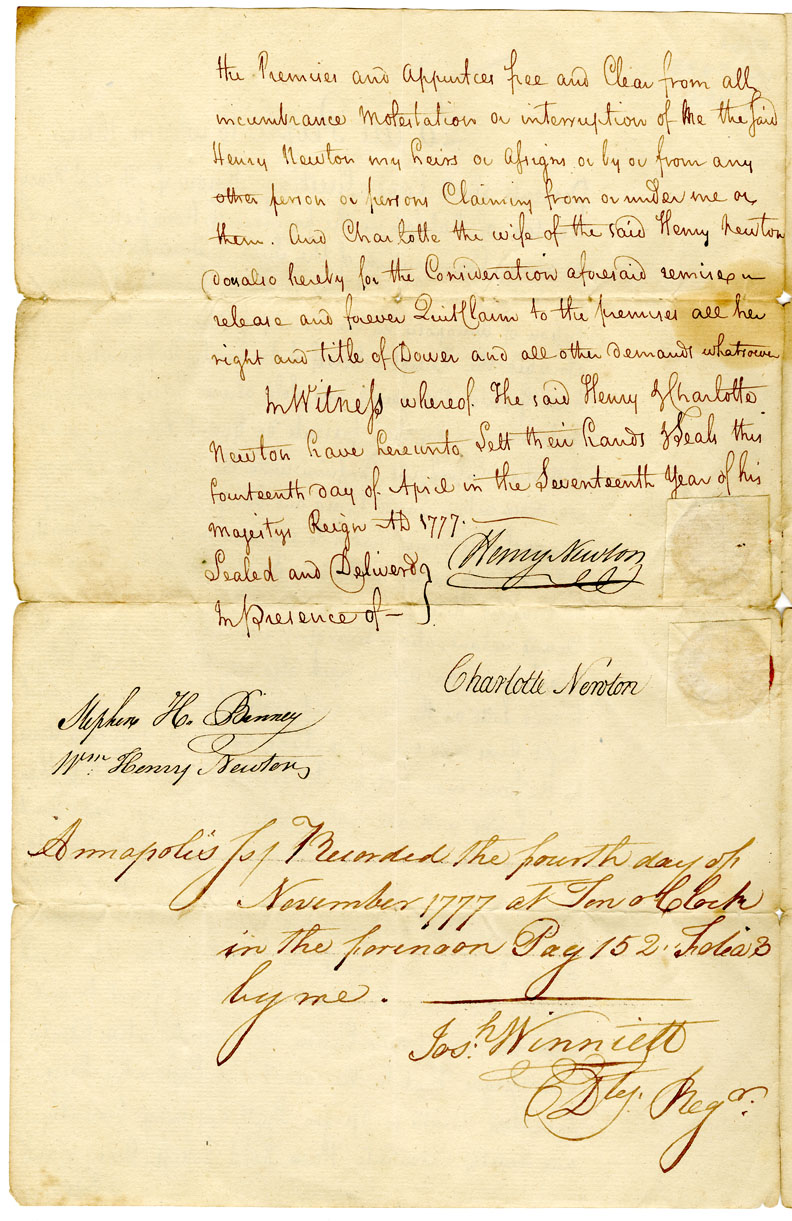 the Premises and Appurtces free and Clear from all
incumbrance Molestation or interruption of Me the Said
Henry Newton my heirs or Assigns or by or from any
other person or persons Claiming from or under me or
them. And Charlotte the wife of the said Henry Newton
do also hereby for the Consideration aforesaid remise
release and forever Quit Claim to the premises all her
right and title of Dower and all other demands whatsoever
In Witness whereof The said Henry & Charlotte
Newton have hereunto Sett their hands & Seals this
fourteenth day of April in the Seventeenth Year of his
Majestys Reign AD 1777.
Sealed and Deliverd
In presence of —
Henry Newton
Charlotte Newton
Stephen H. Binney
Wm. Henry Newton
Annapolis Ss/ Recorded the fourth day of
November 1777 at Ten o Clock
in the forenoon Pag 152. Folia 3
by me.
Josh. Winniett
Dty. Regr.